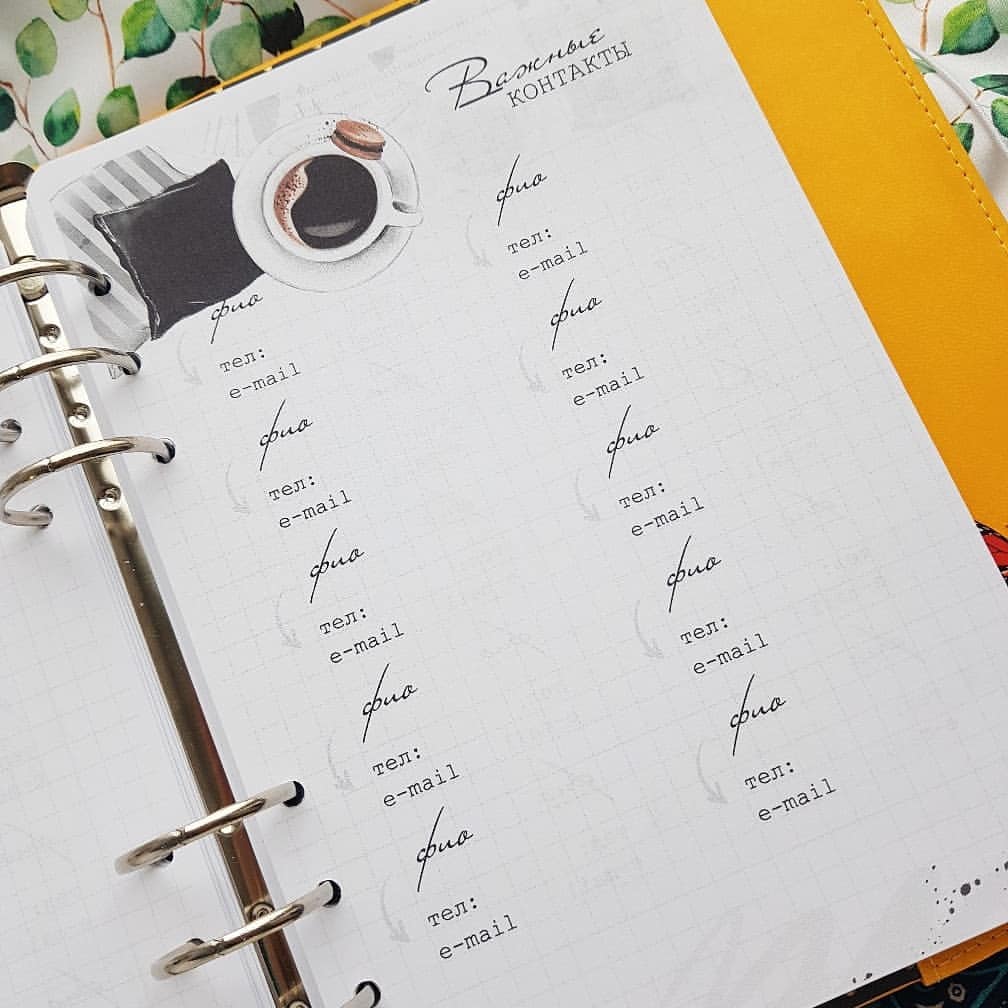 Важные
КОНТАКТЫ
фио
тел:
e-mail
фио
тел:
e-mail
фио
тел:
e-mail
фио
тел:
e-mail
фио
тел:
e-mail
фио
тел:
e-mail
фио
тел:
e-mail
фио
тел:
e-mail
фио
тел:
e-mail
фио
тел:
e-mail